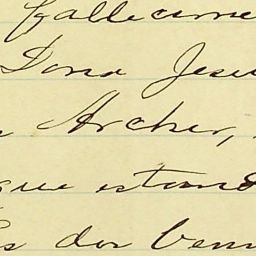 fallecime
Dona Jesu
Archer,
que estand
dos benu